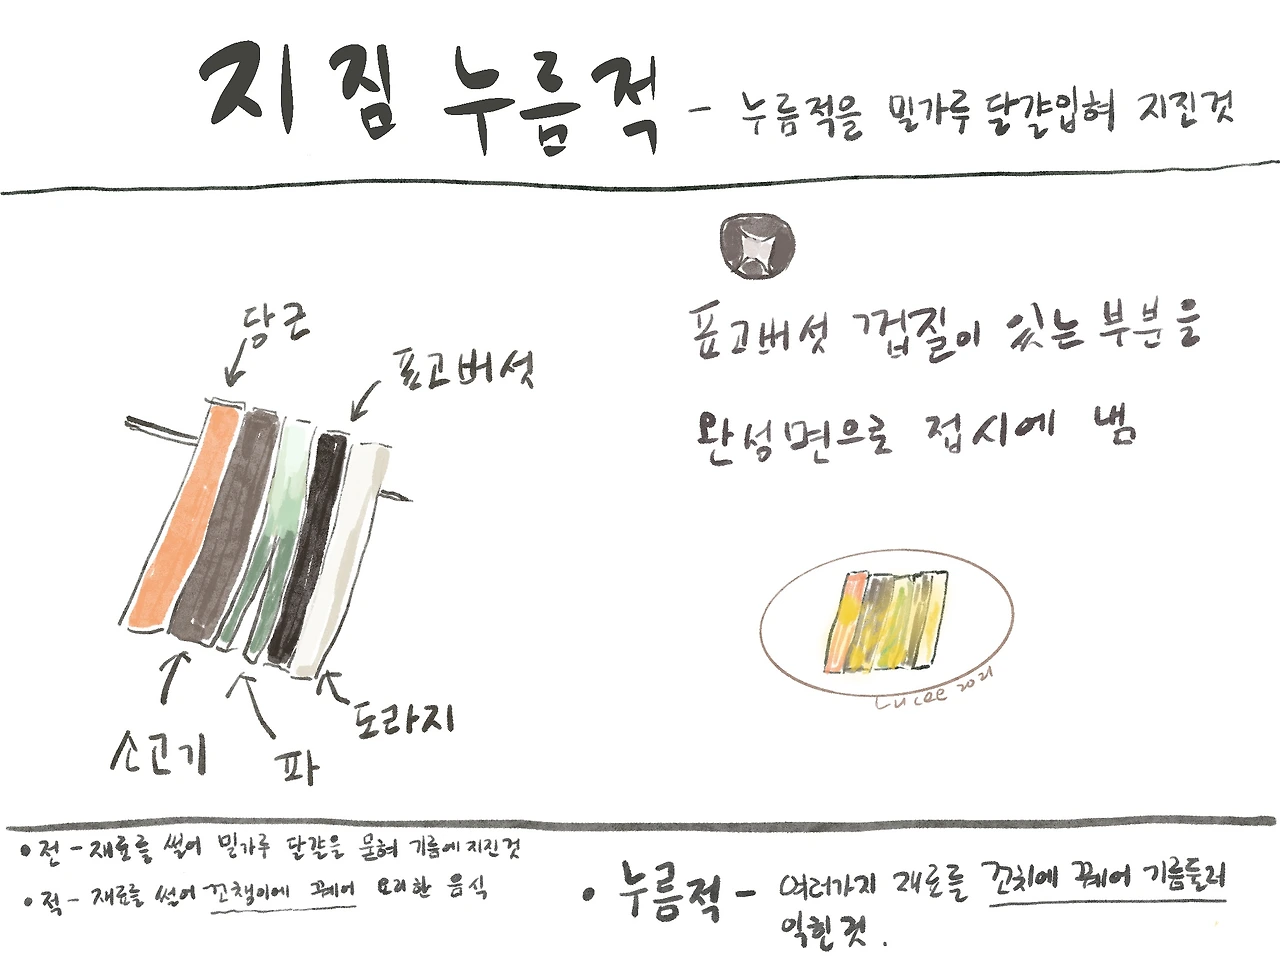 지짐누름적 - 누름적을 밀가루 달걀입혀 지진것
표고버섯 껍질이 있는 부분을
완성면으로 접시에 냄
당근
표고버섯
소고기
파
도라지
Lucee 2021
• 전 - 재료를 썰어 밀가루 달걀을 묻혀 기름에 지진것
• 적 - 재료를 썰어 꼬챙이에 꿰어 요리한 음식
• 누름적 - 여러가지 재료를 꼬치에 꿰어 기름둘러
익힌것.